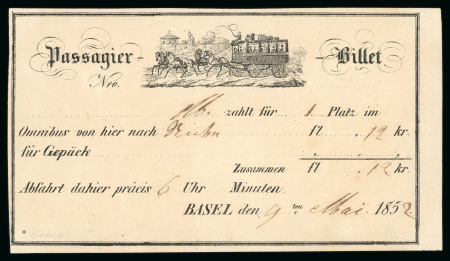 Passagier- -Billet
Nro.
zahlt für 1 Platz im
Omnibus von hier nach fl . 12 kr.
für Gepäck
Zusammen fl . 12 kr.
Abfahrt dahier präcis 6 Uhr Minuten.
BASEL den 9 ten Mai 1852